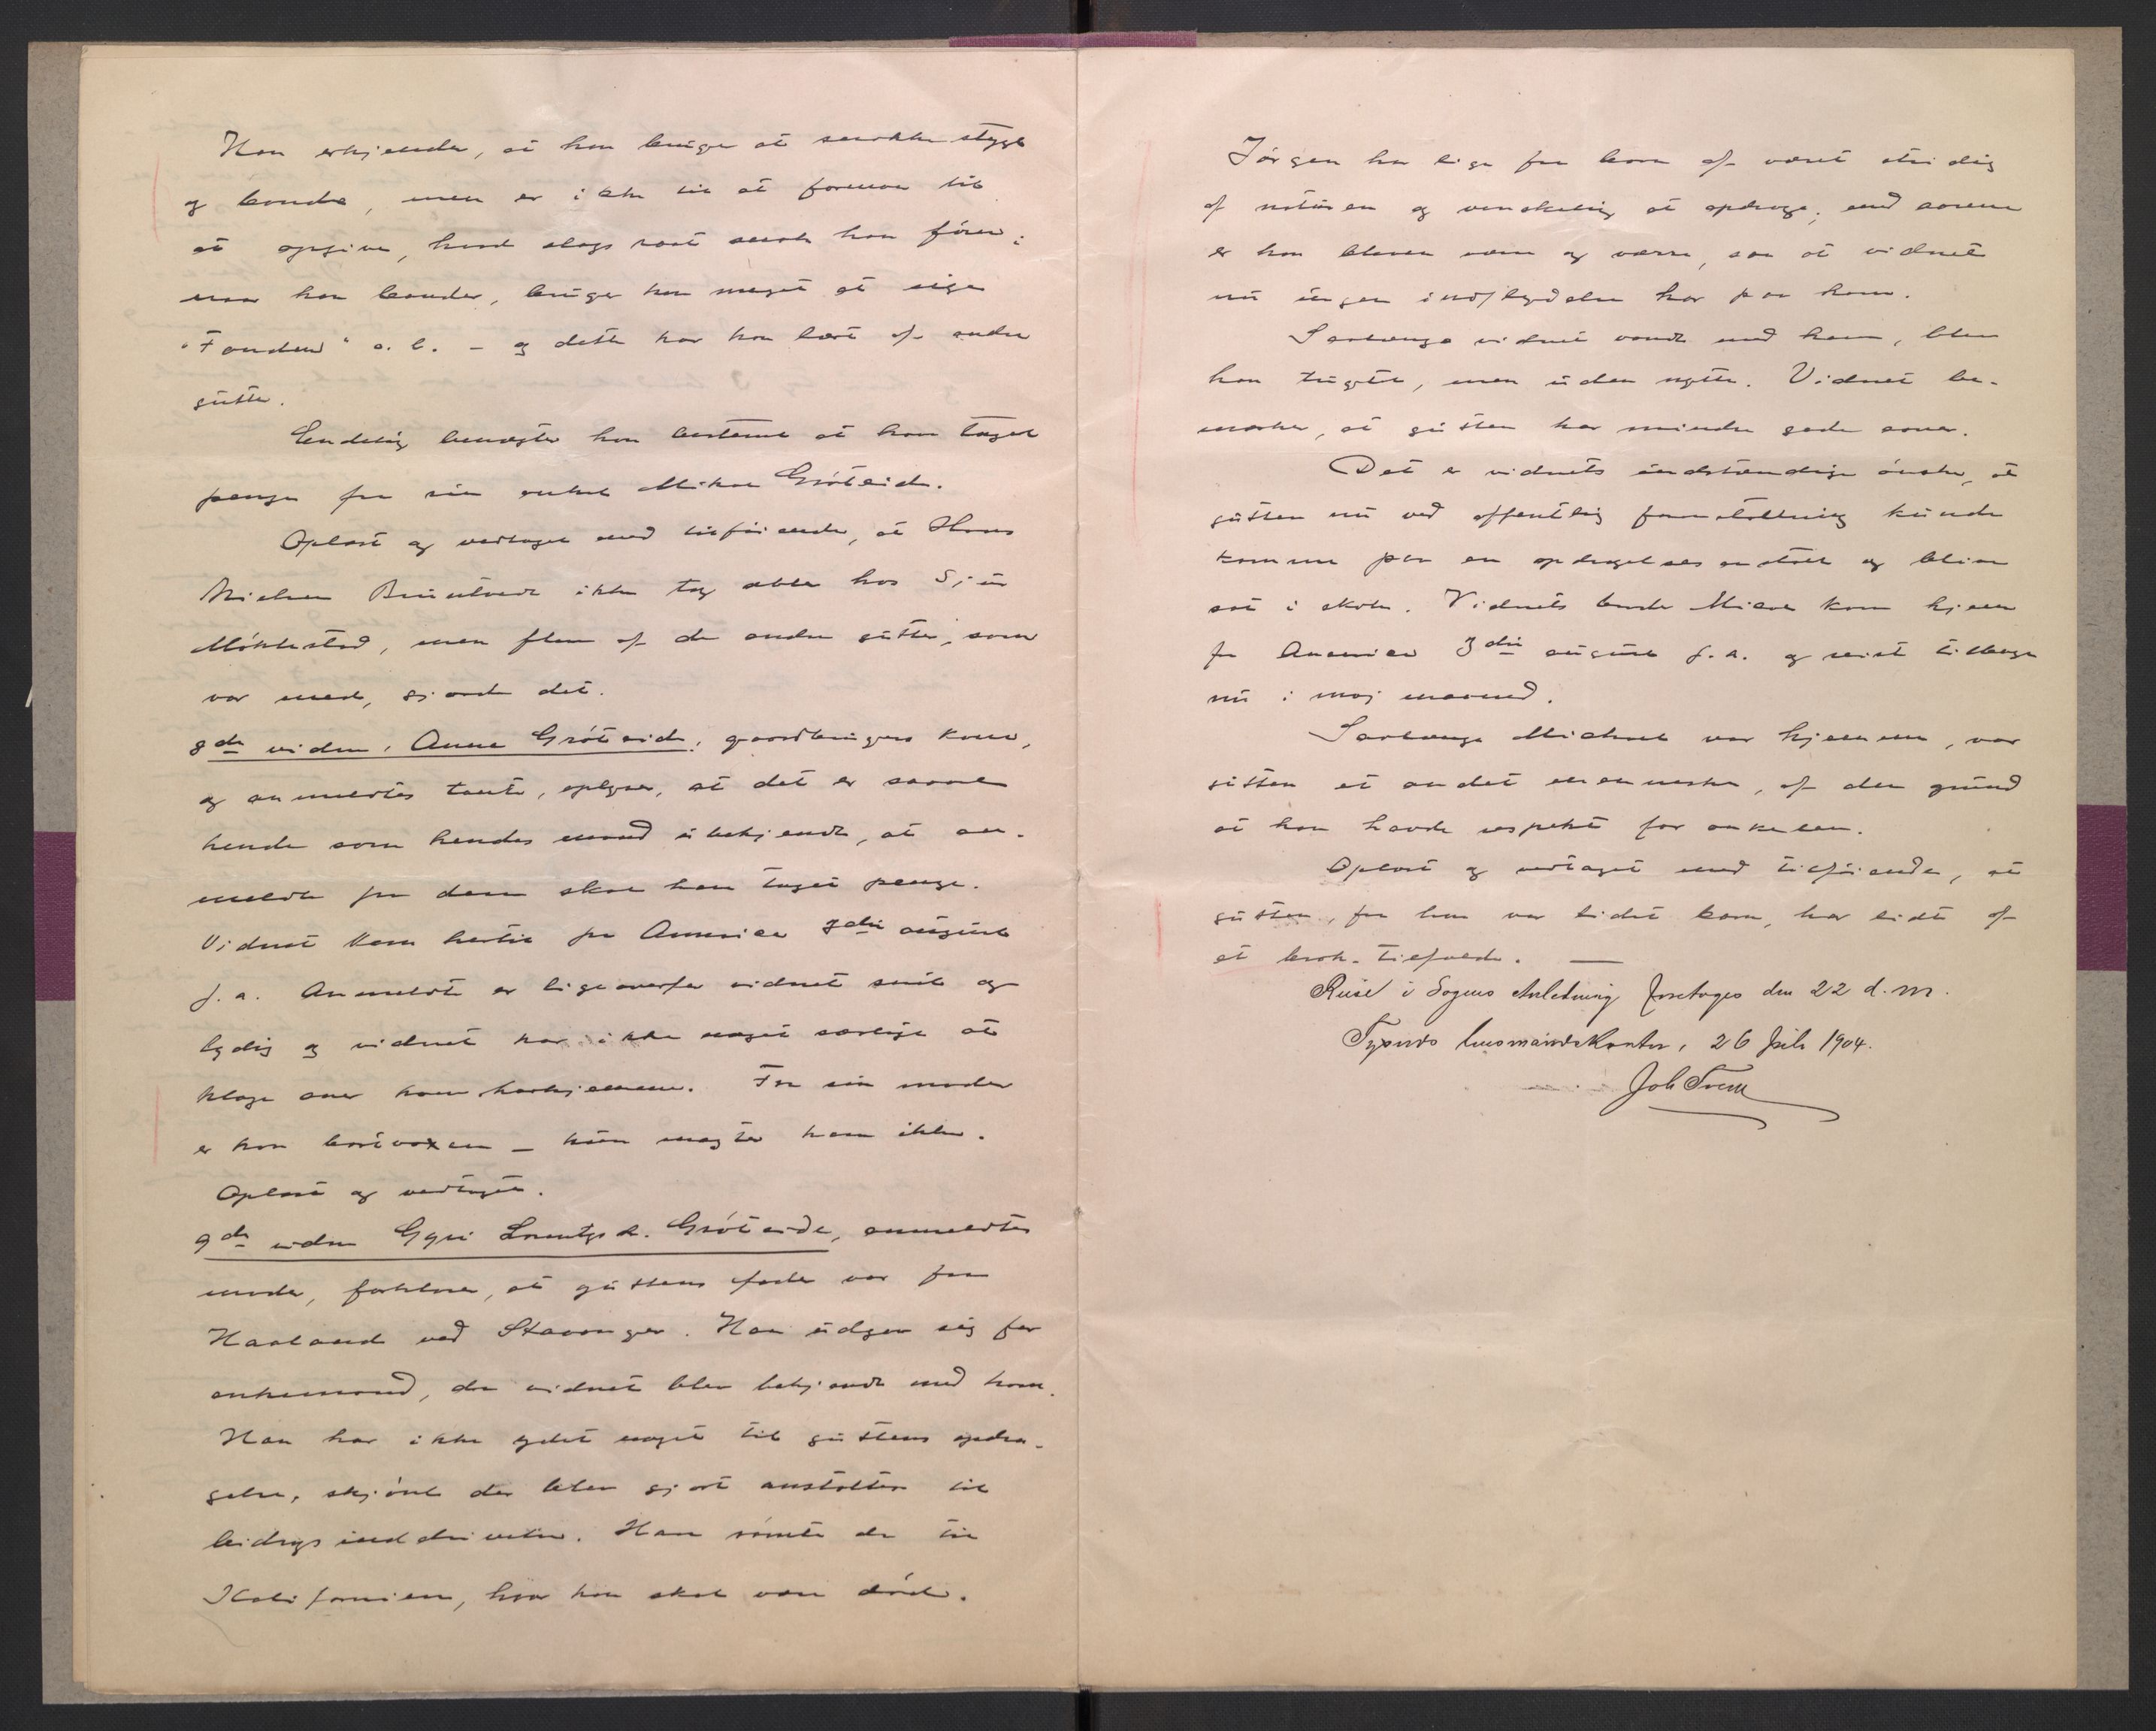 Han erkjender, at han bruger at snakke stygt
og bande, men er ikke til at formaa til
at opgive, hvad slags raat snak han fører;
naar han bander, bruger han meget at sige
"Fanden" o. l. – og dette har han lært af andre
gutter.
Endelig benegter han bestemt at have taget
penge fra sin onkel Mikal Gröteide.
Oplæst og vedtaget med tilføiende, at Hans
Nielsen ikke tog æbler hos Sjur
Möklestad, men flere af de andre gutter, som
var med, gjorde det.
8de vidne, Anna Gröteide, gaardbrugers kone,
og anmeldtes tante, oplyser, at det er saavel
hende som hendes mand ubekjendt, at an-
meldte fra dem skal have taget penge.
Vidnet kom hertil fra America 3die august
f. a. Anmeldte er ligeoverfor vidnet snil og
lydig og vidnet har ikke noget særligt at
klage over ham herhjemme. Fra sin moder
er han bortvoxen – hun magter ham ikke.
Oplæst og vedtaget.
9de vidne Gyri Lorentzd. Gröteide, anmeldtes
moder, forklarer, at guttens fader var fra
Haaland ved Stavanger. Han udgav sig for
enkemand, da vidnet blev bekjendt med ham.
Han har ikke ydet noget til guttens opdra-
gelse, skjönt der blev gjort anstalter til
bidrags inddrivelse. Han römte da til
Kalifornien, hvor han skal være död.
Jörgen har lige fra barn af været stridig
af naturen og vanskelig at opdrage; med aarene
er han bleven værre og værre, saa at vidnet
nu ingen indflydelse har paa ham.
Saalænge vidnet vandt med ham, blev
han tugtet, men uden nytte. Vidnet be-
mærker, at gutten har mindre gode evner.
Det er vidnets indstændige ønske, at
gutten nu ved offentlig foranstaltning kunde
komme paa en opdragelsesanstalt og blive
sat i skole. Vidnets broder Micael kom hjem
fra America 3die august f. a. og reiste tilbage
nu i maj maaned.
Saalænge Michael var hjemme, var
gutten et andet menneske, af den grund
at han havde respekt for onkelen.
Oplæst og vedtaget med tilføiende, at
gutten, fra han var lidet barn, har lidt af
et brok-tilfælde. —
Reise i Sagens Anledning foretages den 22 d. m.
Lensmandskontor, 26 Juli 1904.
Joh Tveit